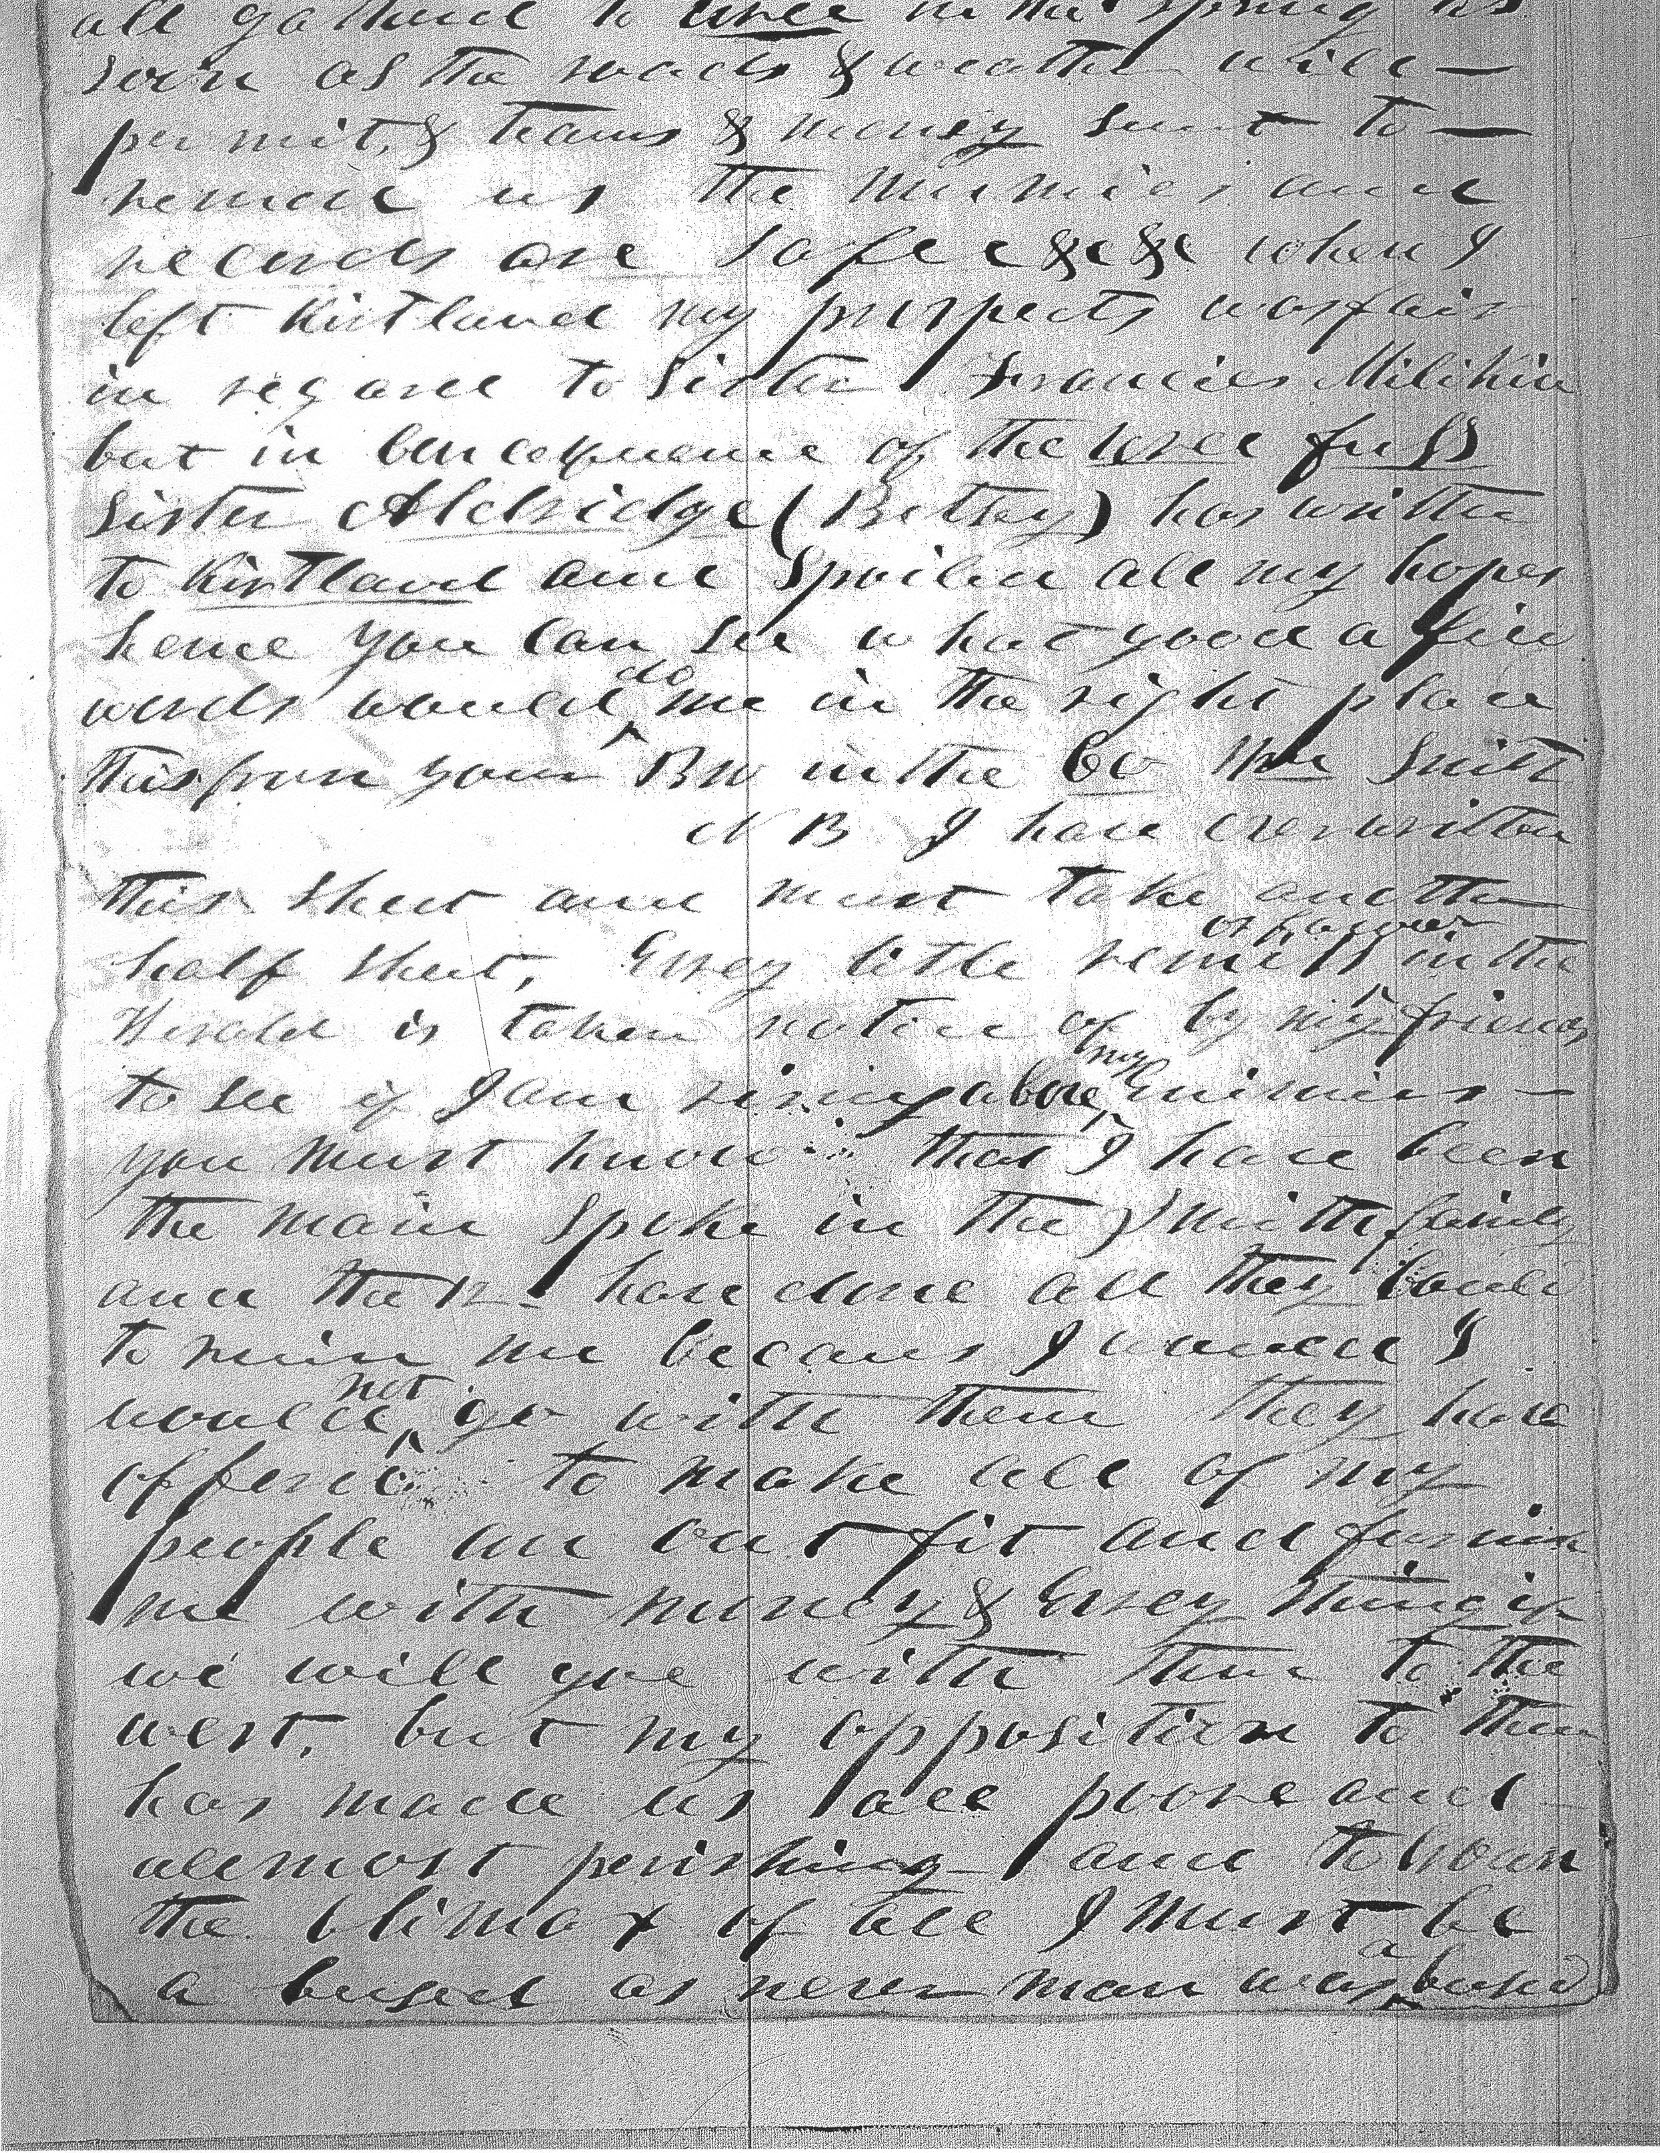 all gathered to voree in the spring as
soon as the roads & weather will —
permit, & teams & money sent to —
remove us the mumies and
records are safe &c &c when I
left Kirtland my prospects was fair
in regard to Sister Francies Milikin
but in concequence of the voree fuss
Sister Aldridge (Betsey) has written
to Kirtland and spoiled all my hopes
hence you can see what good a few
words would do me in the right place
this from your Br in the Co Wm Smith
N B I have overwritten
this sheet and must take another
half sheet, Evrey little remiss or favor in the
Herald is taken notice of by my friends
to see if I am rising above my enimies —
you must know that I have been
the main spoke in the Smith family
and the 12 have done all they could
to ruin me becaus I would I
would not go with them they have
offered to make all of my
people an out fit and furnish
me with money & Evrey thing if
we will goe with them to the
west, but my opposition to them
has made us all poore and
allmost perishing and to crown
the climax of all I must be
a bused as never man was abused